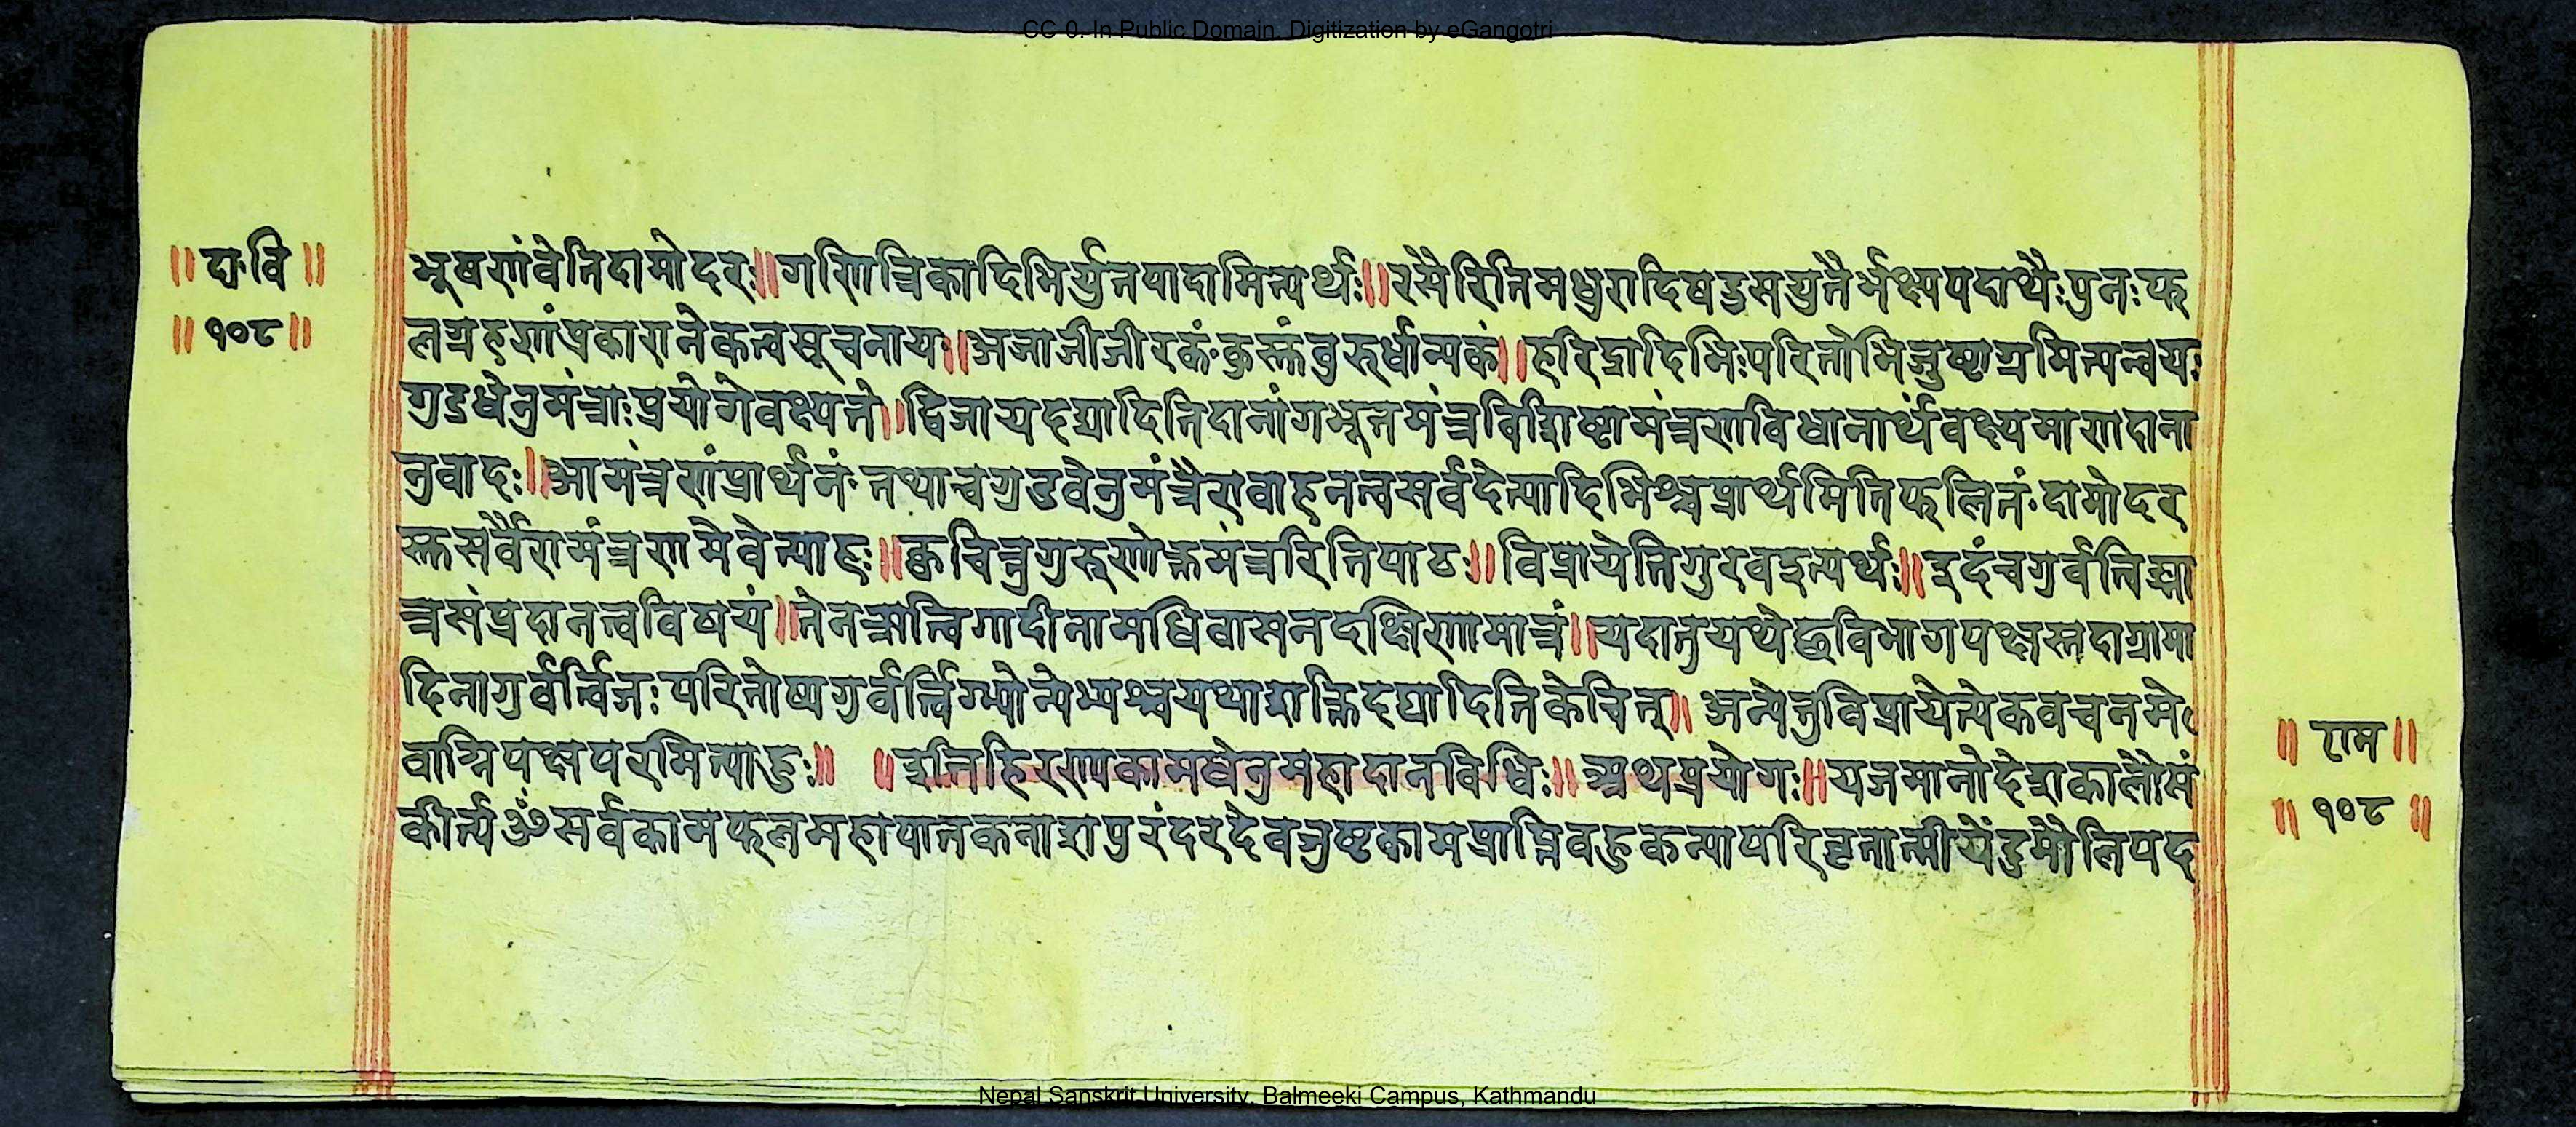 CC-0. In Public Domain. Digitization by eGangotri
॥ दा॰वि ॥
॥ १०८ ॥
भूषणंवेतिदामोदरः॥गणित्रिकादिभिर्युतपादामित्यर्थः॥रसैरितिमधुरादिषड्रसयुतैर्भक्ष्यपदार्थैःपुनःफ
लग्रहणंप्रकारानेकत्वसूचनाय॥अजाजीजीरकं॰कुस्तुंवुरुर्धान्यकं॥हरिद्रादिभिःपरितोभिजुष्टाग्रमित्यन्वयः
गुडधेनुमंत्राःप्रयोगेवक्ष्यन्ते॥द्विजायदद्यादितिदानांगभूतमंत्रविशिष्टामंत्रणविधानार्थंवक्ष्यमाणदाना
नुवादः॥आमंत्रणंप्रार्थनं॰तथाचगुडधेनुमंत्रैरावाहनत्वसर्वदेत्यादिभिश्चप्रार्थमितिफलितं॰दामोदर
स्तुसर्वैरामंत्रणमेवेत्याह॥क्वचित्तुगुरुणोक्तमंत्रैरितिपाठः॥विप्रायेतिगुरवइत्यर्थः॥इदंचगुर्वर्त्विङ्मा
त्रसंप्रदानत्वविषयं॥तेनऋत्विगादीनामधिवासनदक्षिणामात्रं॥यदातुयथेछविभागपक्षस्तदाग्रामा
दिनागुर्वर्त्विजःपरितोष्यगुर्वर्त्विग्भ्योन्येभ्यश्चयथाशक्तिदद्यादितिकेचित्॥ अन्येतुविप्रायेत्येकवचनमे
वाग्निपक्षपरमित्याहुः॥ ॥इतिहिरण्यकामधेनुमहादानविधिः॥ अथप्रयोगः॥यजमानोदेशकालौसं
कीर्त्यॐसर्वकामफलमहापातकनाशपुरंदरदेवजुष्टकामप्राप्तिवहुकन्यापरिवृतात्मीयेंदुमौलिपद
॥ राम ॥
॥ १०८ ॥
Nepal Sanskrit University, Balmeeki Campus, Kathmandu